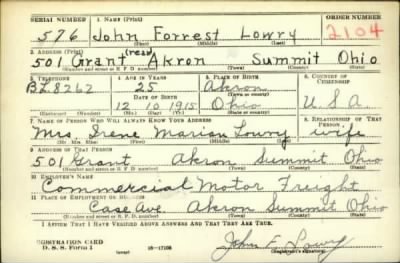 SERIAL NUMBER 1. NAME (Print) ORDER NUMBER
576 John Forrest Lowry 2104
(First) (Middle) (Last)
2. ADDRESS (Print)
501 Grant Akron Summit Ohio
(Number and street or R. F. D. number) (Town) (County) (State)
3. TELEPHONE 4. AGE IN YEARS 5. PLACE OF BIRTH 6. COUNTRY OF CITIZENSHIP
BL 8262 25 Akron
DATE OF BIRTH (Town or county)
12 10 1915 Ohio U.S.A.
(Exchange) (Number) (Mo.) (Day) (Yr.) (State or country)
7. NAME OF PERSON WHO WILL ALWAYS KNOW YOUR ADDRESS 8. RELATIONSHIP OF THAT PERSON
Mrs Irene Marian Lowry wife
(Mr. Mrs. Miss) (First) (Middle) (Last)
9. ADDRESS OF THAT PERSON
501 Grant Akron Summit Ohio
(Number and street or R. F. D. number) (Town) (County) (State)
10. EMPLOYER'S NAME
Commercial Motor Freight
11. PLACE OF EMPLOYMENT OR BUSINESS
Case Ave. Akron Summit Ohio
(Number and street or R. F. D. number) (Town) (County) (State)
I AFFIRM THAT I HAVE VERIFIED ABOVE ANSWERS AND THAT THEY ARE TRUE.
REGISTRATION CARD
D. S. S. FORM 1 16-17105 John F. Lowry